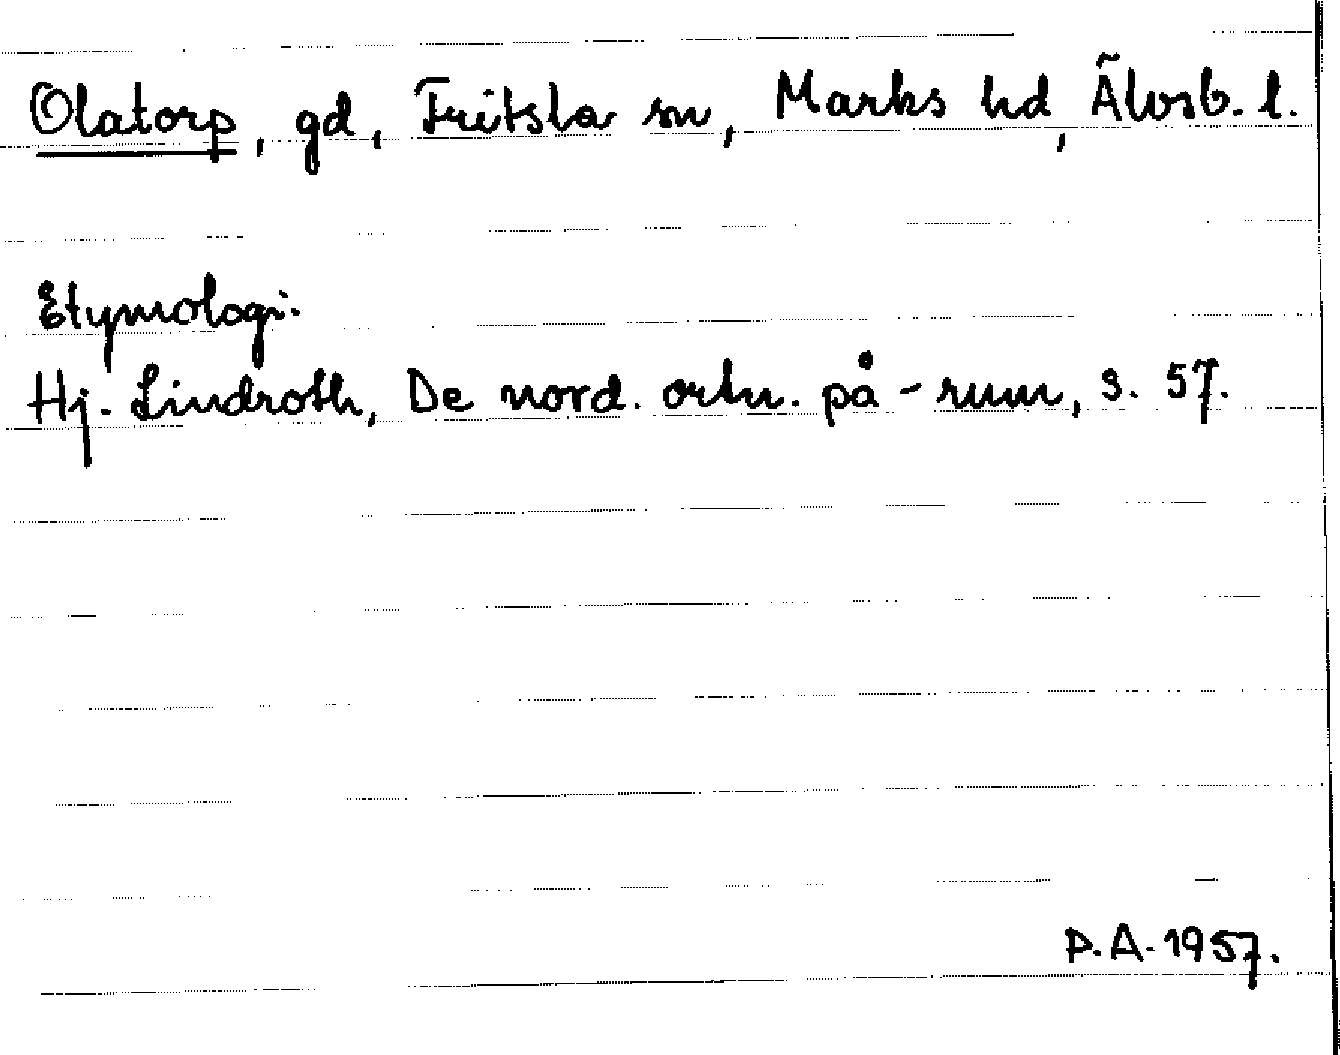 Olatorp, gd, Fritsla sn, Marks hd, Älvsb. l.
Etymologi.
Hj. Lindroth, De nord. ortn. på -rum, s. 57.
P.A. 1957.